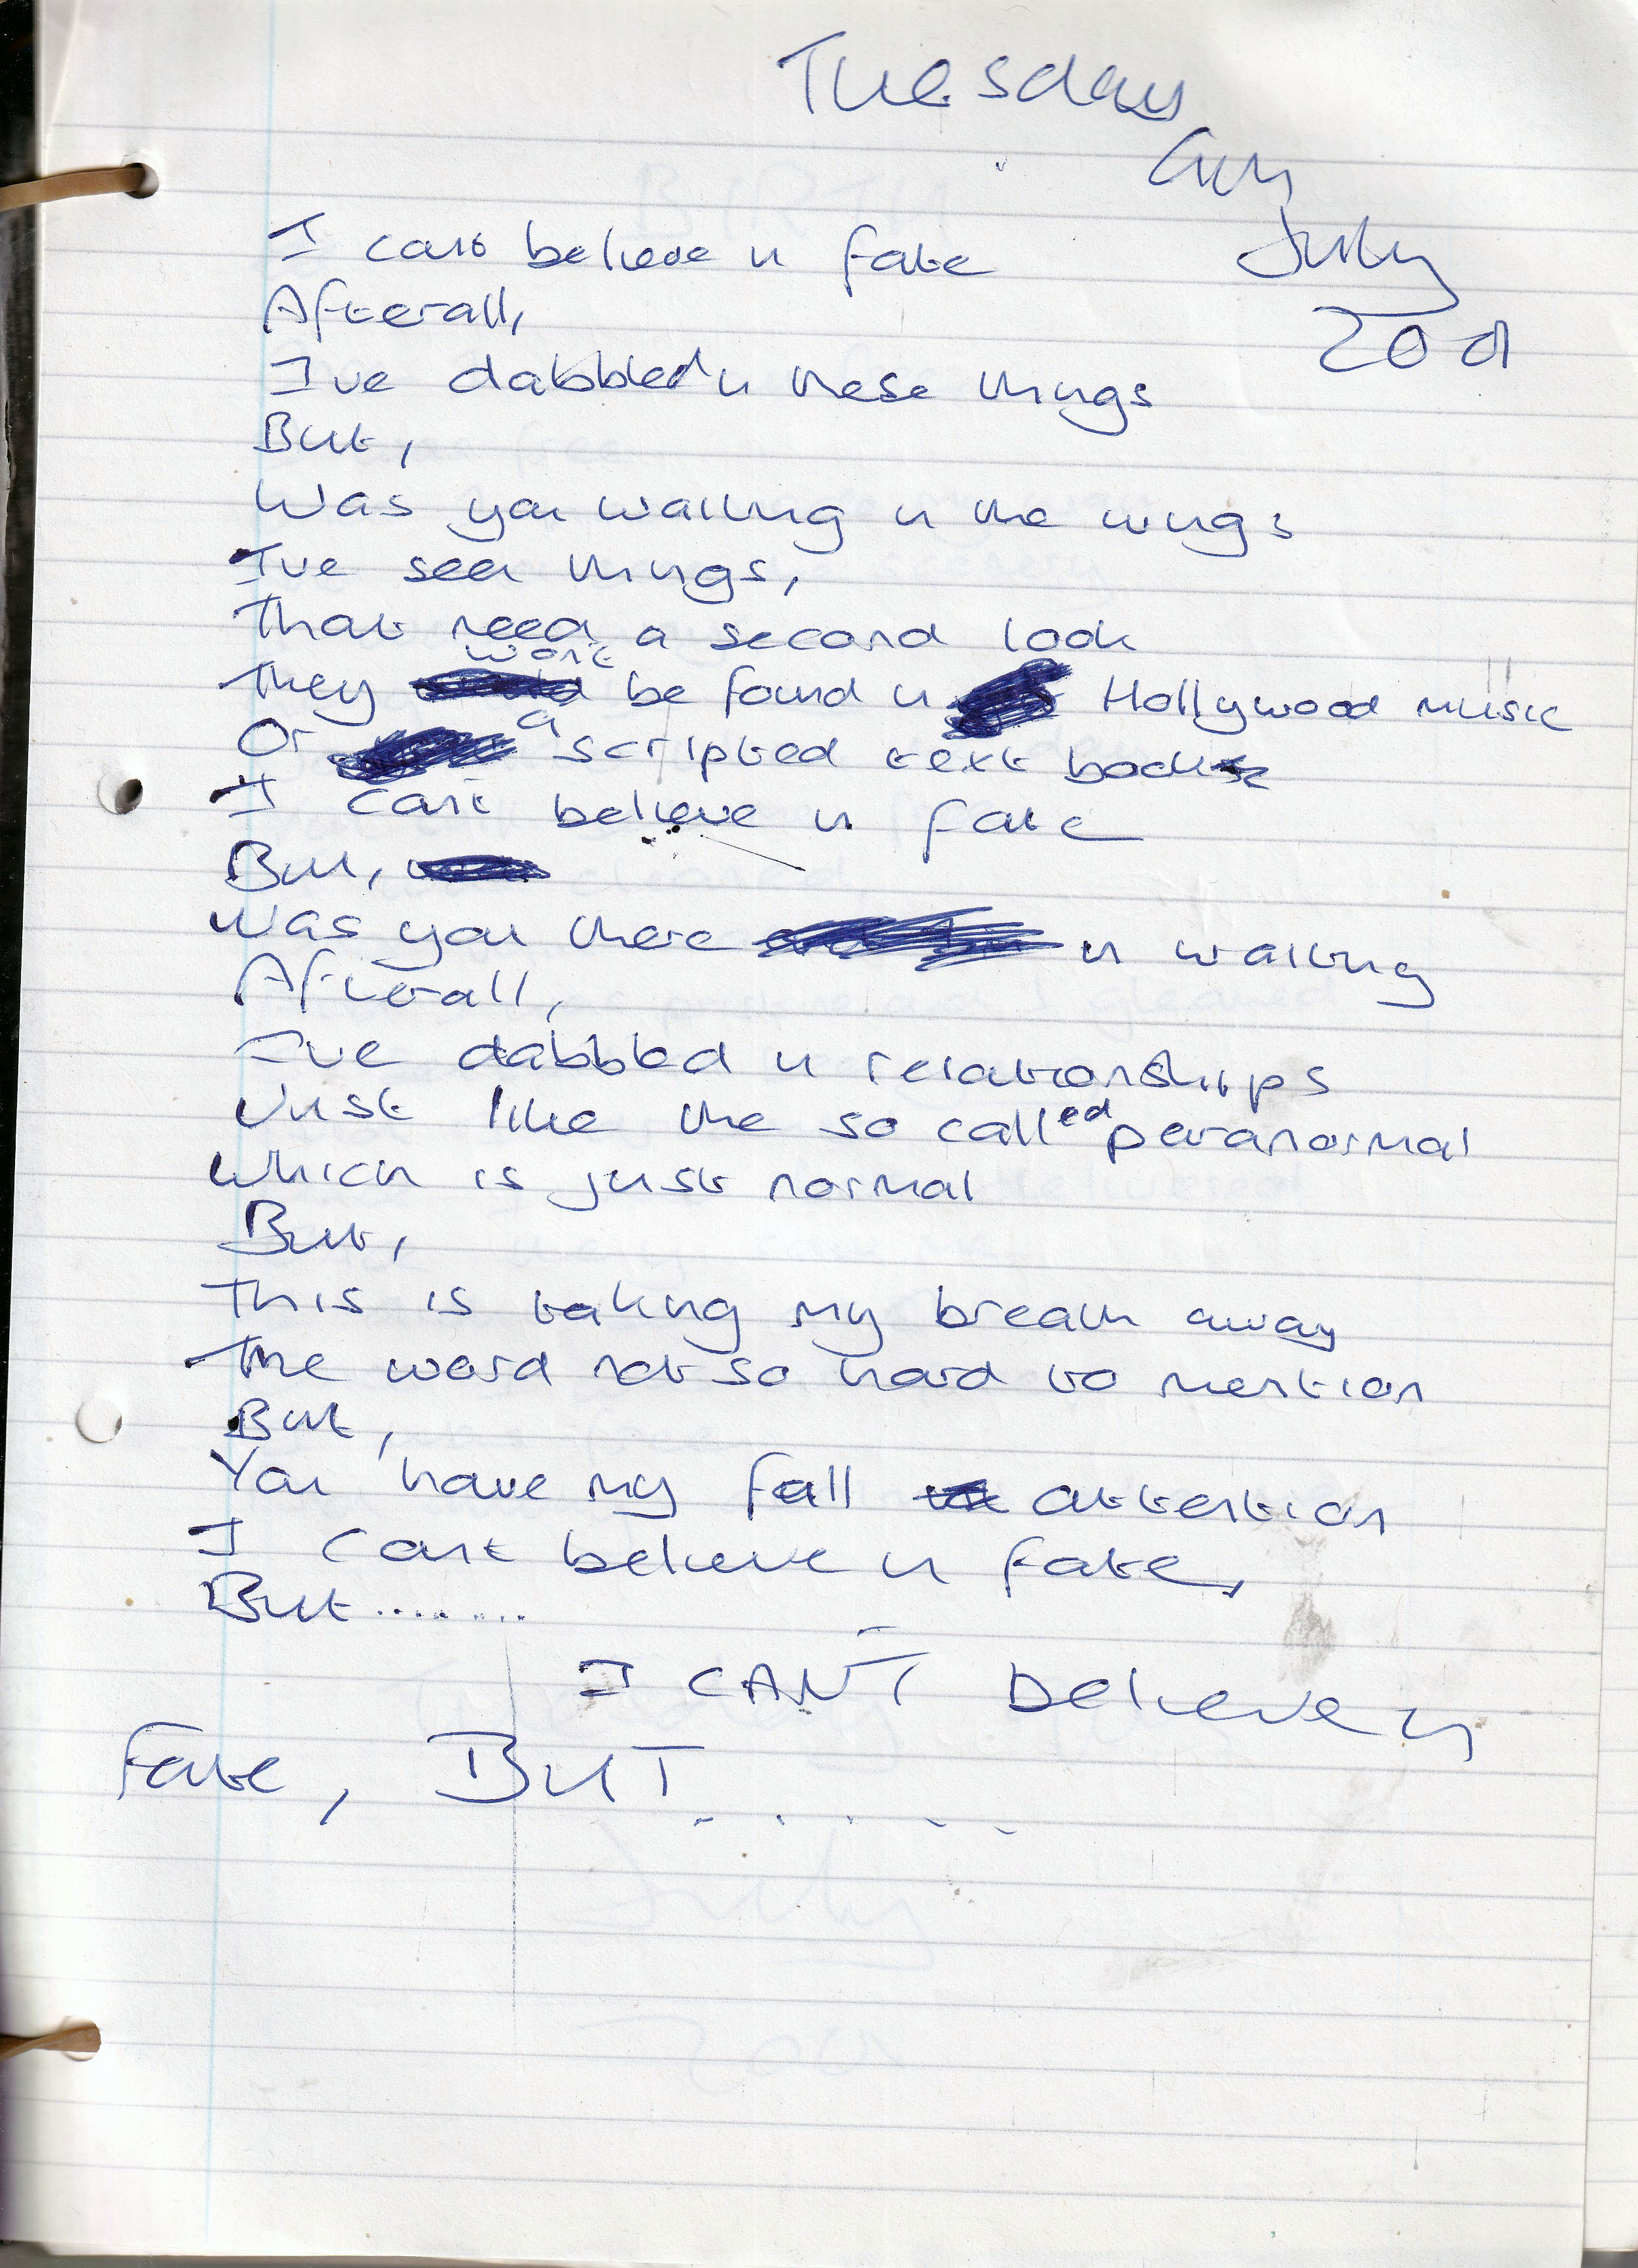 Tuesday
July
2001
I cant believe in fate
Afterall,
I've dabbled in these things
But,
Was you waiting in the wings
I've seen things,
That need a second look
They wont be found in Hollywood music
Or a scripted text book
I cant believe in fate
But,
Was you there in waiting
Afterall,
I've dabbled in relationships
Just like the so called paranormal
Which is just normal
But,
This is taking my breath away
The word not so hard to mention
But,
You have my full attention
I cant believe in fate,
But........
I CAN'T believe in
Fate, BUT......